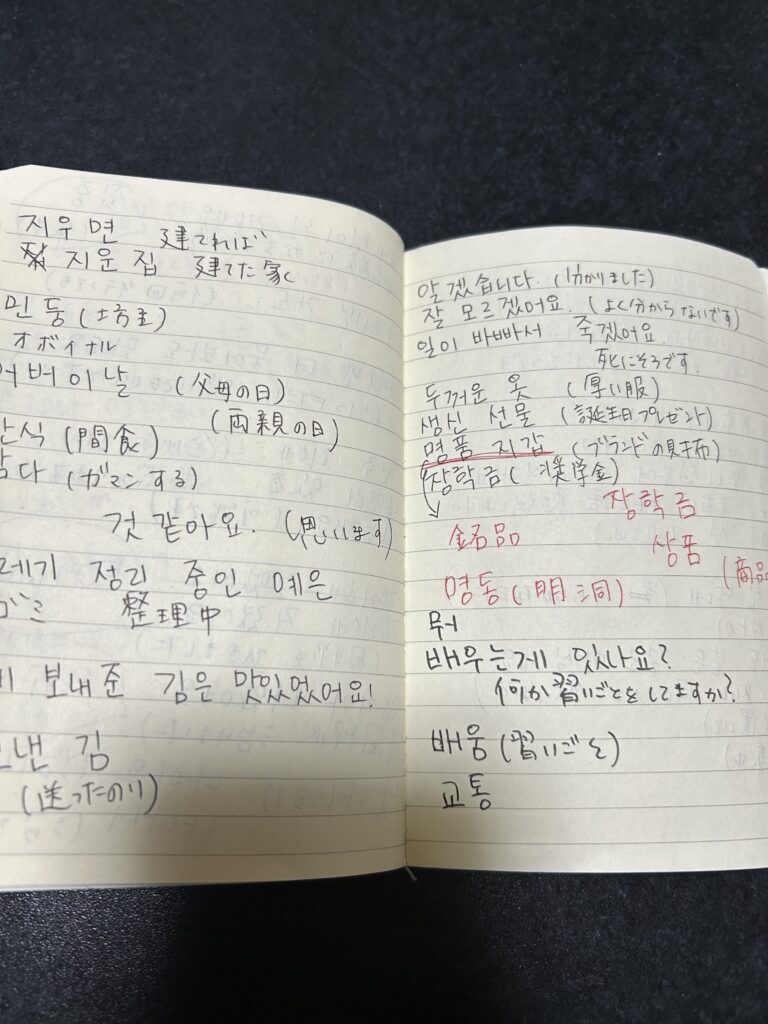 지우면 建てれば
지운 집 建てた家
민둥 (坊主)
オボイナル
버이날 (父母の日)
(両親の日)
간식 (間食)
참다 (ガマンする)
것 같아요. (思います)
레기 정리 중인 예은
ゴミ 整理中
보내준 김은 맛있었어요!
보낸 김
(送ったのり)
알겠습니다. (分かりました)
잘 모르겠어요. (よく分からないです)
일이 바빠서 죽겠어요
死にそうです.
두꺼운 옷 (厚い服)
생신 선물 (誕生日プレゼント)
명품 지갑 (ブランドの財布)
장학금 (奨学金)
장학금
銘品
상품
(商品
명동 (明洞)
뭐
배우는게 있나요?
何か習いごとをしてますか?
배움 (習いごと)
교통